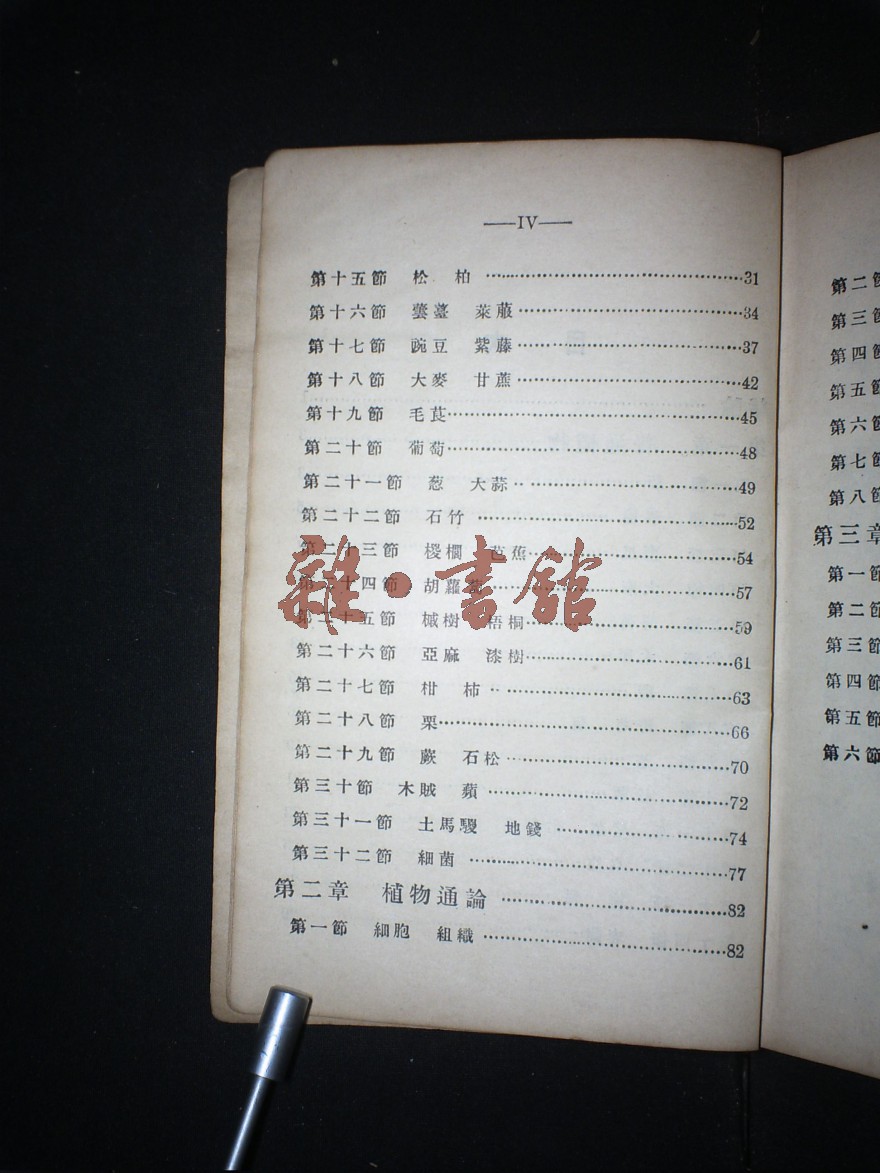 ——IV——
第十五節 松 柏 31
第十六節 蕓薹 萊菔 34
第十七節 豌豆 紫藤 37
第十八節 大麥 甘蔗 42
第十九節 毛茛 45
第二十節 葡萄 48
第二十一節 葱 大蒜 49
第二十二節 石竹 52
第二十三節 椶櫚 芭蕉 54
第二十四節 胡蘿蔔 57
第二十五節 槭樹 梧桐 59
第二十六節 亞麻 漆樹 61
第二十七節 柑 柿 63
第二十八節 栗 66
第二十九節 蕨 石松 70
第三十節 木賊 蘋 72
第三十一節 土馬騣 地錢 74
第三十二節 細菌 77
第二章 植物通論 82
第一節 細胞 組織 82
雜·書館
第二節
第三節
第四節
第五節
第六節
第七節
第八節
第三章
第一節
第二節
第三節
第四節
第五節
第六節